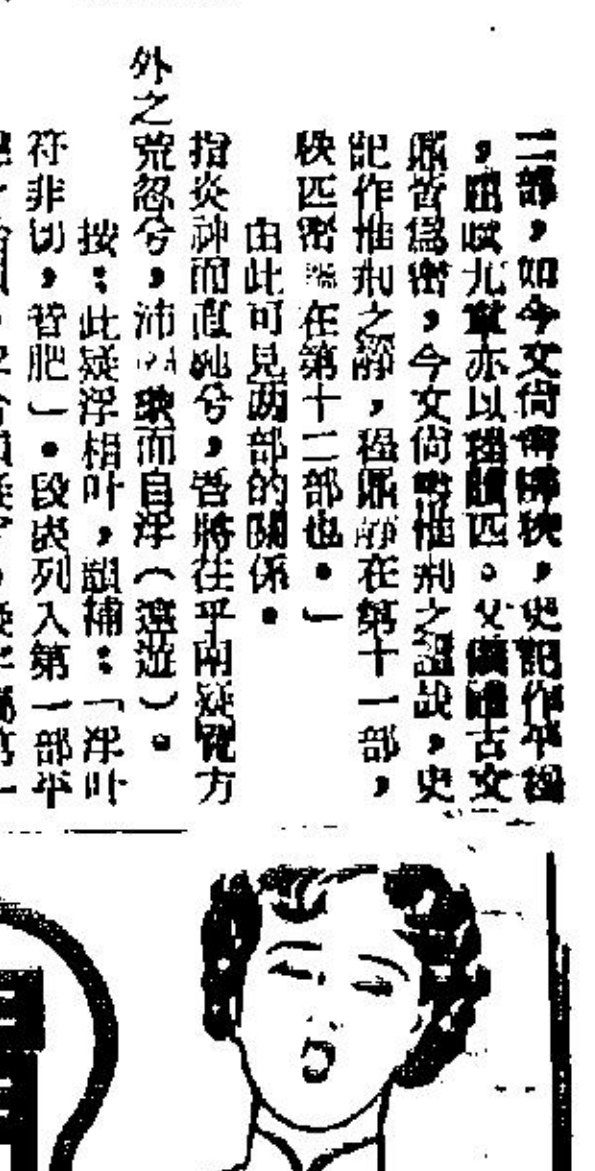 二部，如今文尚書秩，史記作平程
，屈賦九章亦以程匹。又儀禮古文
鼏皆爲密，今文尚書惟刑之謐哉，史
記作惟刑之靜，程鼏靜在第十一部，
秩匹密在第十二部也。」
由此可見两部的關係。
指炎神而直馳兮，吾將往乎南疑覽方
外之荒忽兮，沛而自浮（遠遊）。
按：此疑浮相叶，韻補：「浮叶
符非切，音肥」。段表列入第一部平